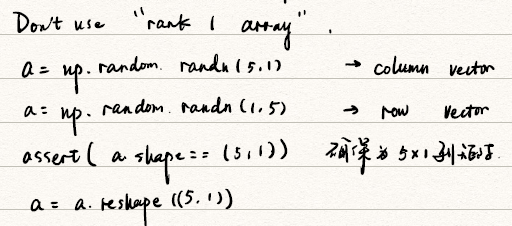 Don't use "rank 1 array".
a = np. random. randn(5,1) → column vector
a = np. random. randn(1,5) → row vector
assert( a.shape == (5,1)) 确保为 5×1 列
a = a. reshape ((5,1))